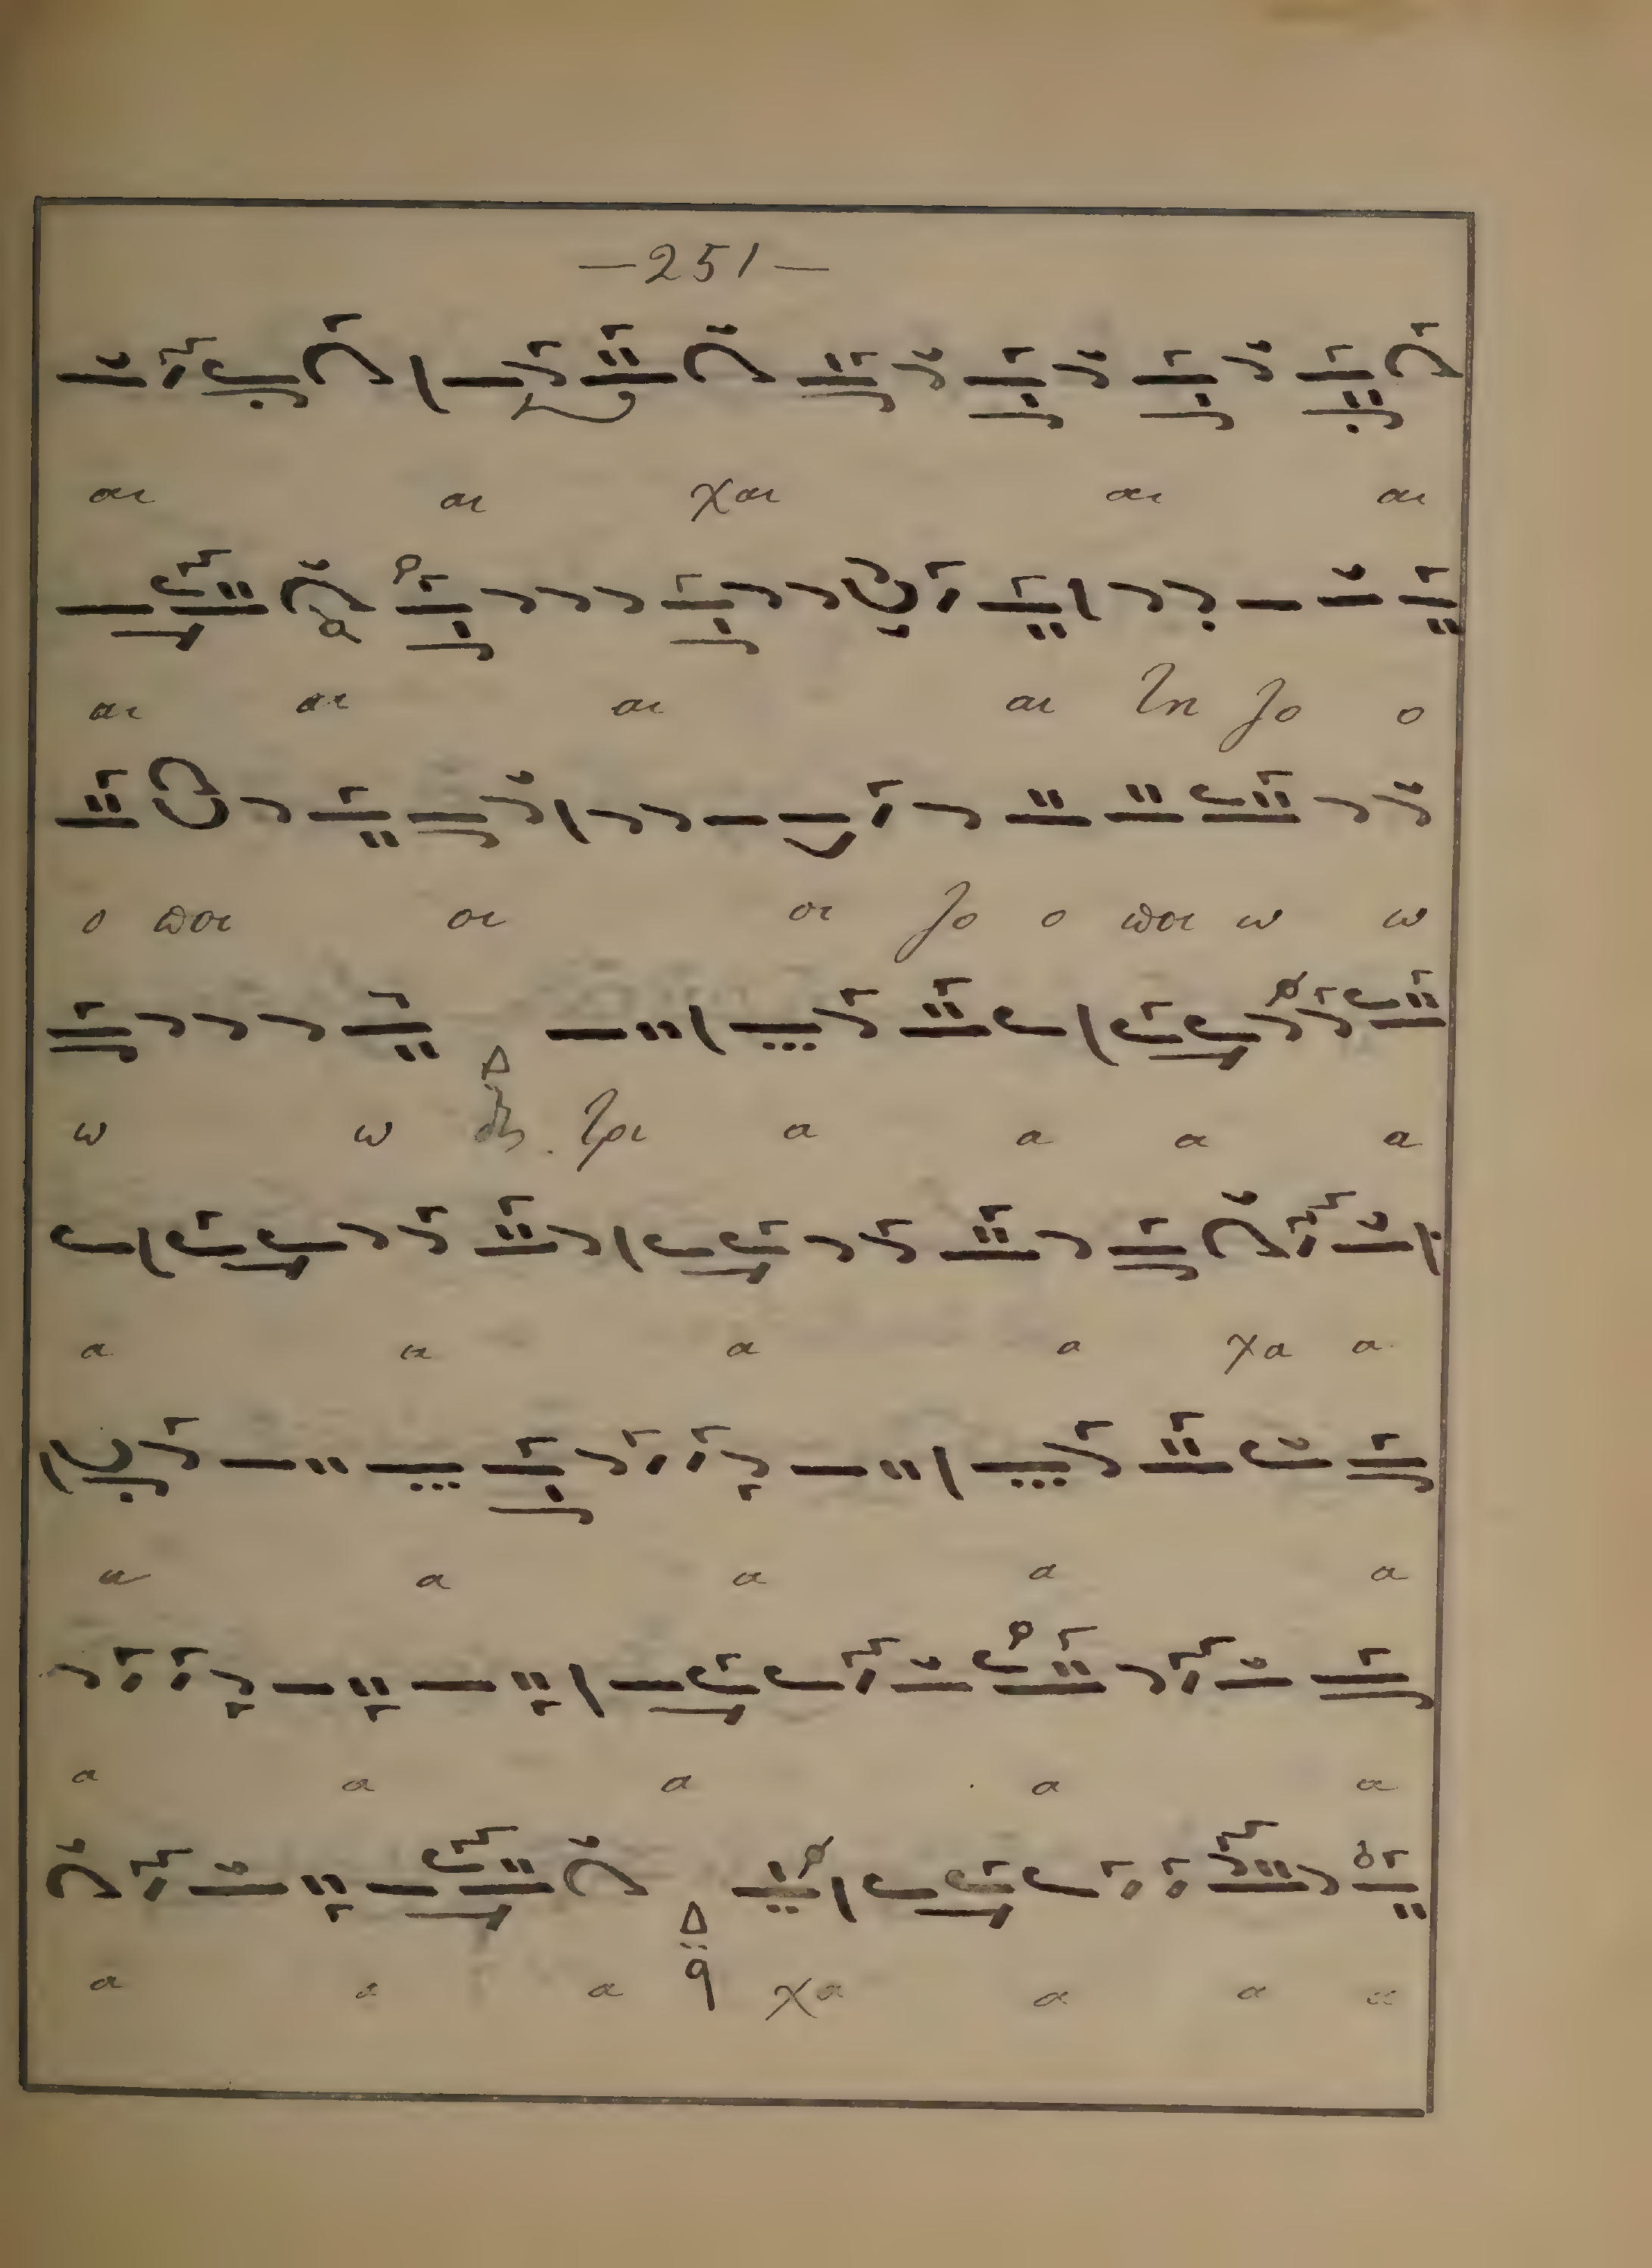 —251—
αι αι χαι αι αι
αι αι αι αι τη το ο
ο ποι οι οι το ο ποι ω ω
ω ω τρι α α α α
α α α α χα α
α α α α α
α α α α α
α α α χα α α α